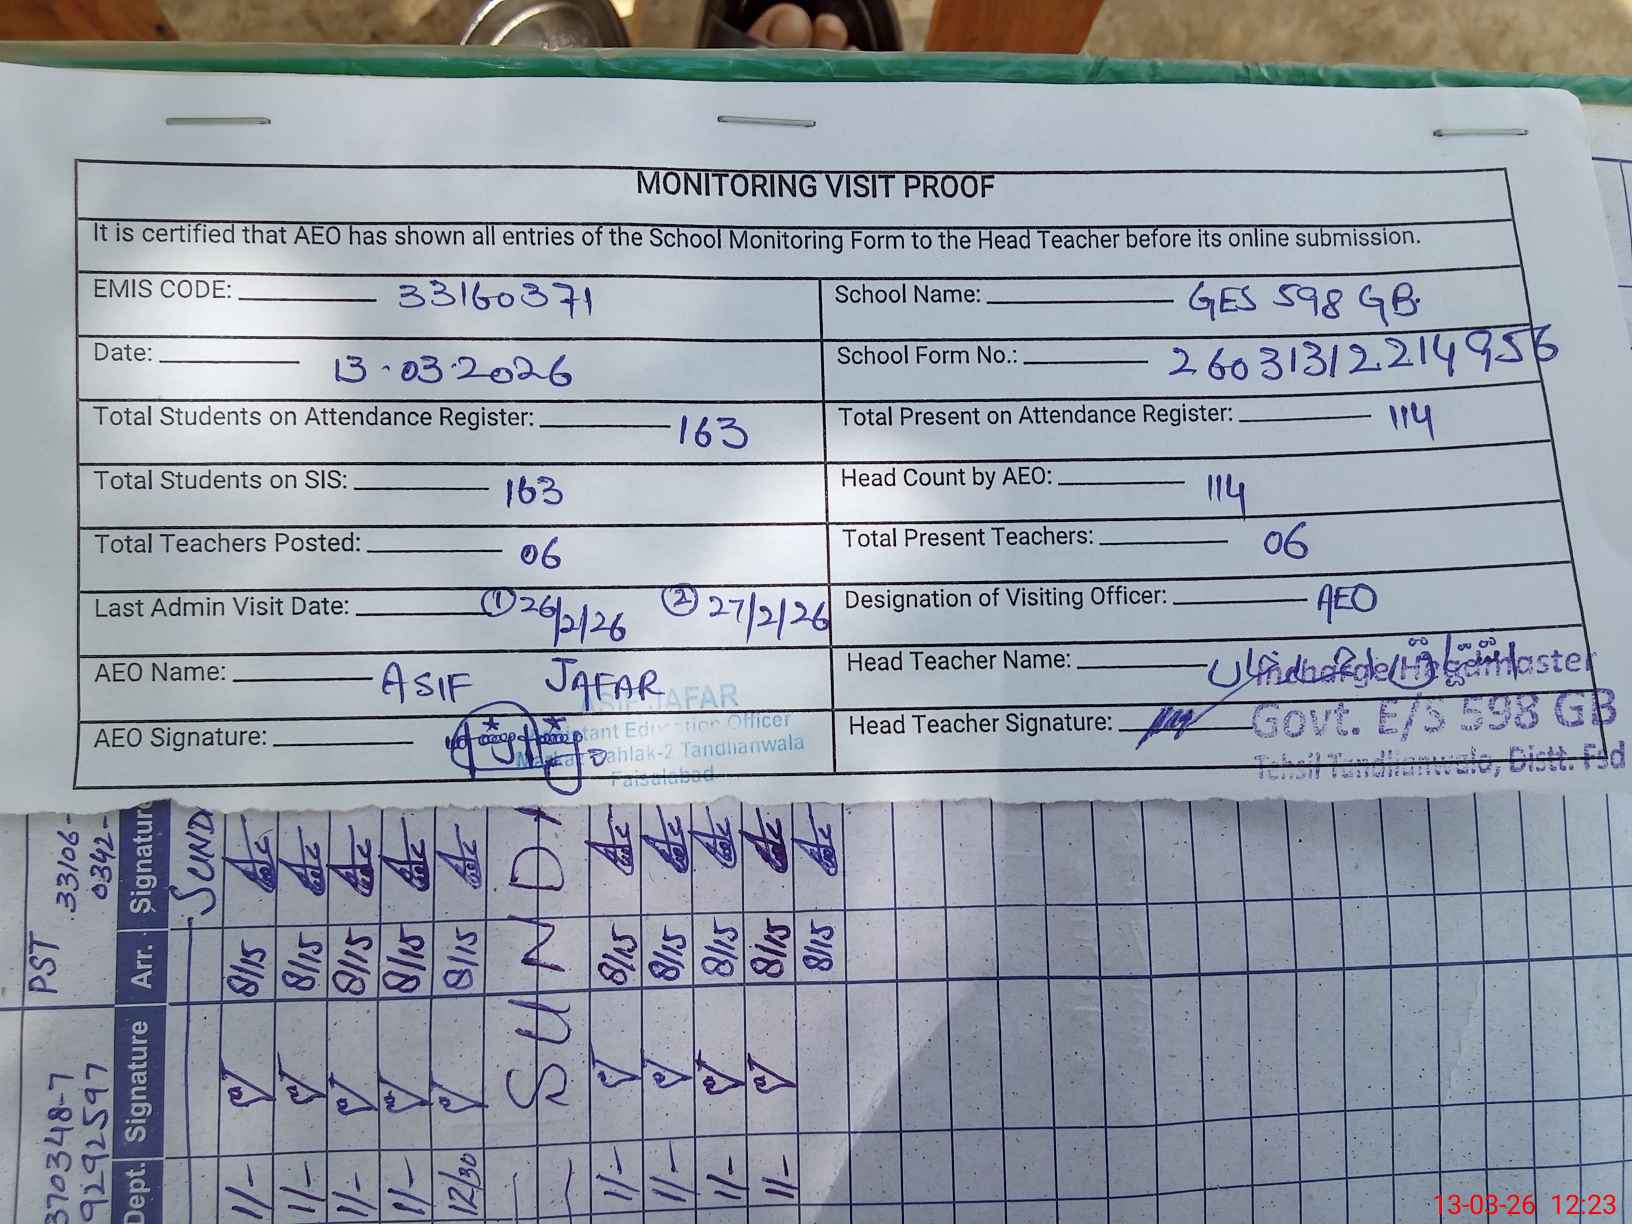 MONITORING VISIT PROOF
It is certified that AEO has shown all entries of the School Monitoring Form to the Head Teacher before its online submission.
EMIS CODE: 33160371
School Name: GES 598 GB.
Date: 13-03-2026
School Form No.: 26031312214956
Total Students on Attendance Register: 163
Total Present on Attendance Register: 114
Total Students on SIS: 163
Head Count by AEO: 114
Total Teachers Posted: 06
Total Present Teachers: 06
Last Admin Visit Date: ① 26/2/26 ② 27/2/26
Designation of Visiting Officer: AEO
AEO Name: ASIF JAFAR
Head Teacher Name:
Incharge/Headmaster
AEO Signature:
ASIF JAFAR
Assistant Education Officer
Markaz Mahlak-2 Tandlianwala
Faisalabad
Head Teacher Signature:
Govt. E/S 598 GB
Tehsil Tandlianwala, Distt. Fsd
PST
33106-
0342-
370348-7
9292597
Dept. Signature Arr. Signature
SUND
1/- 8/15
1/- 8/15
1/- 8/15
1/- 8/15
12/30 8/15
SUNDA
1/- 8/15
1/- 8/15
1/- 8/15
1/- 8/15
8/15
13-03-26 12:23